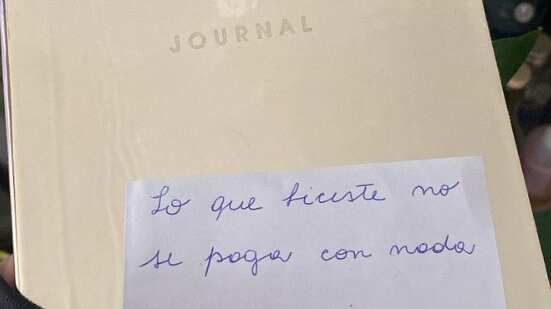 JOURNAL
Lo que hiciste no
se paga con nada